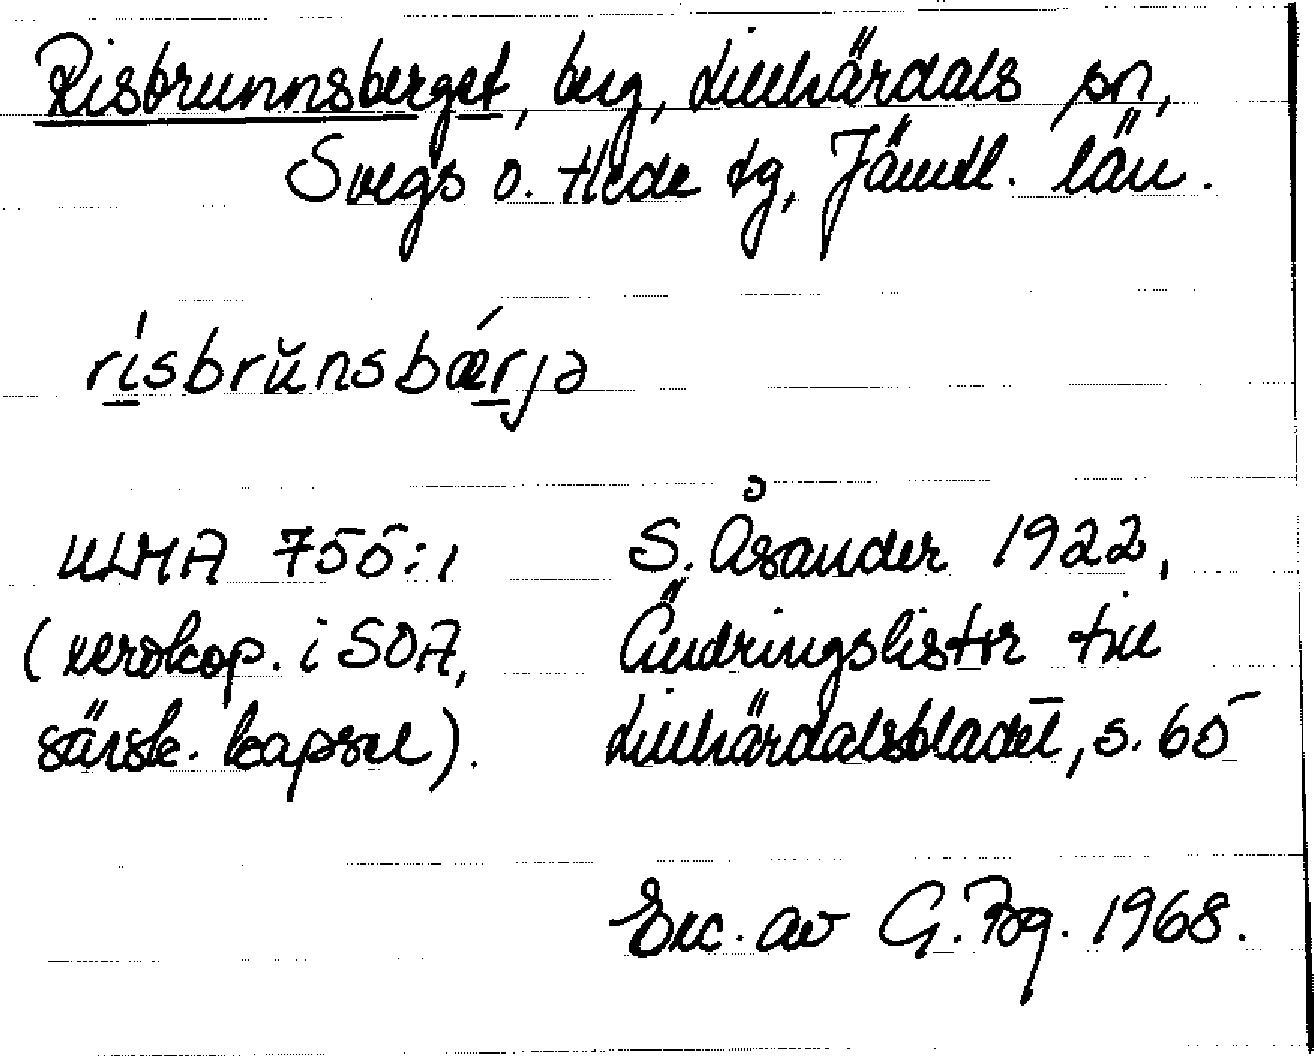 Risbrunnsberget, berg, Lillhärdals sn,
Svegs o. Hede tg, Jämtl. län.
rísbrŭnsbǽrjə
ULMA 755:1
(xerokop. i SOA,
särsk. kapsel).
S. Åsander 1922,
Ändringslistor till
Lillhärdalsbladet, s. 65
Exc. av G. Fbg. 1968.